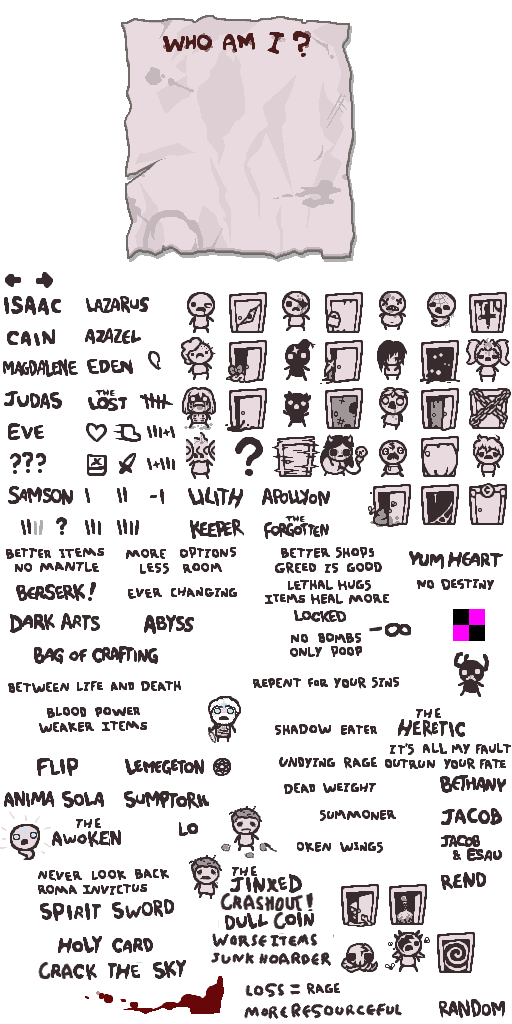 WHO AM I ?
ISAAC LAZARUS
CAIN AZAZEL
MAGDALENE EDEN
JUDAS THE LOST
EVE
???
?
SAMSON LILITH APOLLYON
? KEEPER THE FORGOTTEN
BETTER ITEMS
NO MANTLE
MORE OPTIONS
LESS ROOM
BETTER SHOPS
GREED IS GOOD
YUM HEART
BERSERK!
EVER CHANGING
LETHAL HUGS
ITEMS HEAL MORE
NO DESTINY
DARK ARTS
ABYSS
LOCKED
NO BOMBS
ONLY POOP
-∞
BAG OF CRAFTING
BETWEEN LIFE AND DEATH
REPENT FOR YOUR SINS
BLOOD POWER
WEAKER ITEMS
SHADOW EATER
THE
HERETIC
IT'S ALL MY FAULT
FLIP
LEMEGETON
UNDYING RAGE
OUTRUN YOUR FATE
DEAD WEIGHT
BETHANY
ANIMA SOLA
SUMPTORIUM
SUMMONER
JACOB
THE
AWOKEN
LO
OKEN WINGS
JACOB
& ESAU
NEVER LOOK BACK
ROMA INVICTUS
THE
JINXED
REND
SPIRIT SWORD
CRASHOUT!
DULL COIN
HOLY CARD
WORSE ITEMS
JUNK HOARDER
CRACK THE SKY
LOSS = RAGE
MORE RESOURCEFUL
RANDOM